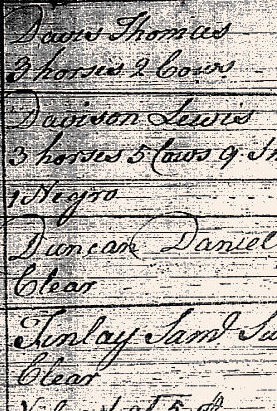 Davis Thomas
3 horses 2 Cows
Davison Lewis
3 horses 5 Cows 9. Sh
1 Negro
Duncan Daniel
Clear
Finlay Saml
Clear